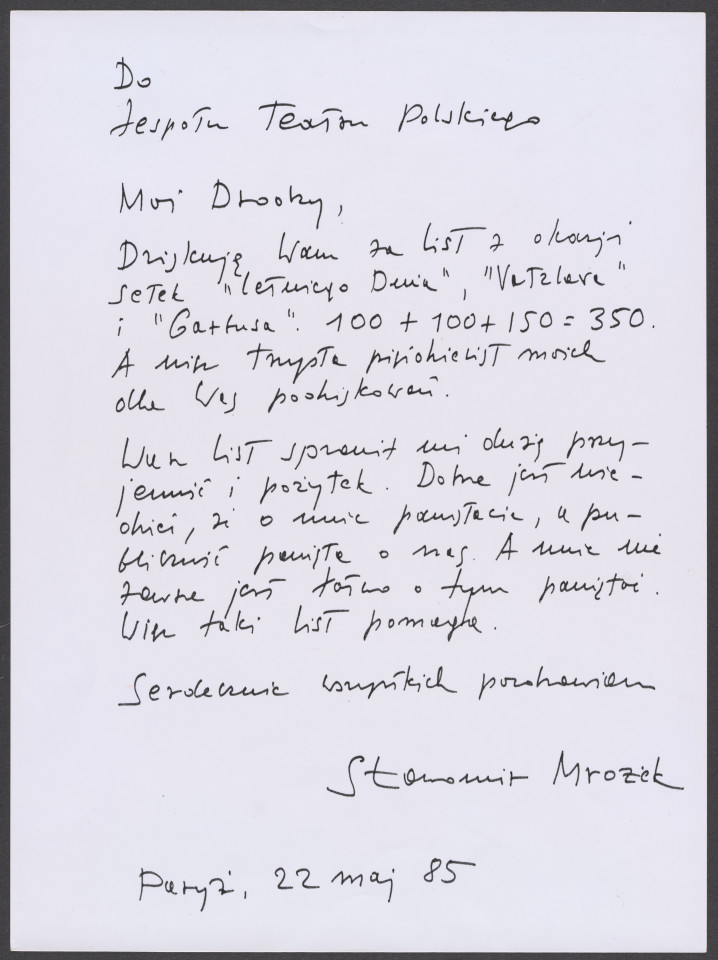 Do
Zespołu Teatru Polskiego
Moi Drodzy,
Dziękuję Wam za list z okazji
setek "Letniego Dnia", "Vatzlava"
i "Garbusa". 100 + 100 + 150 = 350.
A więc trzysta pięćdziesiąt moich
dla Was podziękowań.
Wasz list sprawił mi dużą przy-
jemność i pożytek. Dobrze jest wie-
dzieć, że o mnie pamiętacie, a pu-
bliczność pamięta o nas. A mnie nie
zawsze jest łatwo o tym pamiętać.
Więc taki list pomaga.
Serdecznie wszystkich pozdrawiam
Sławomir Mrożek
Paryż, 22 maj 85